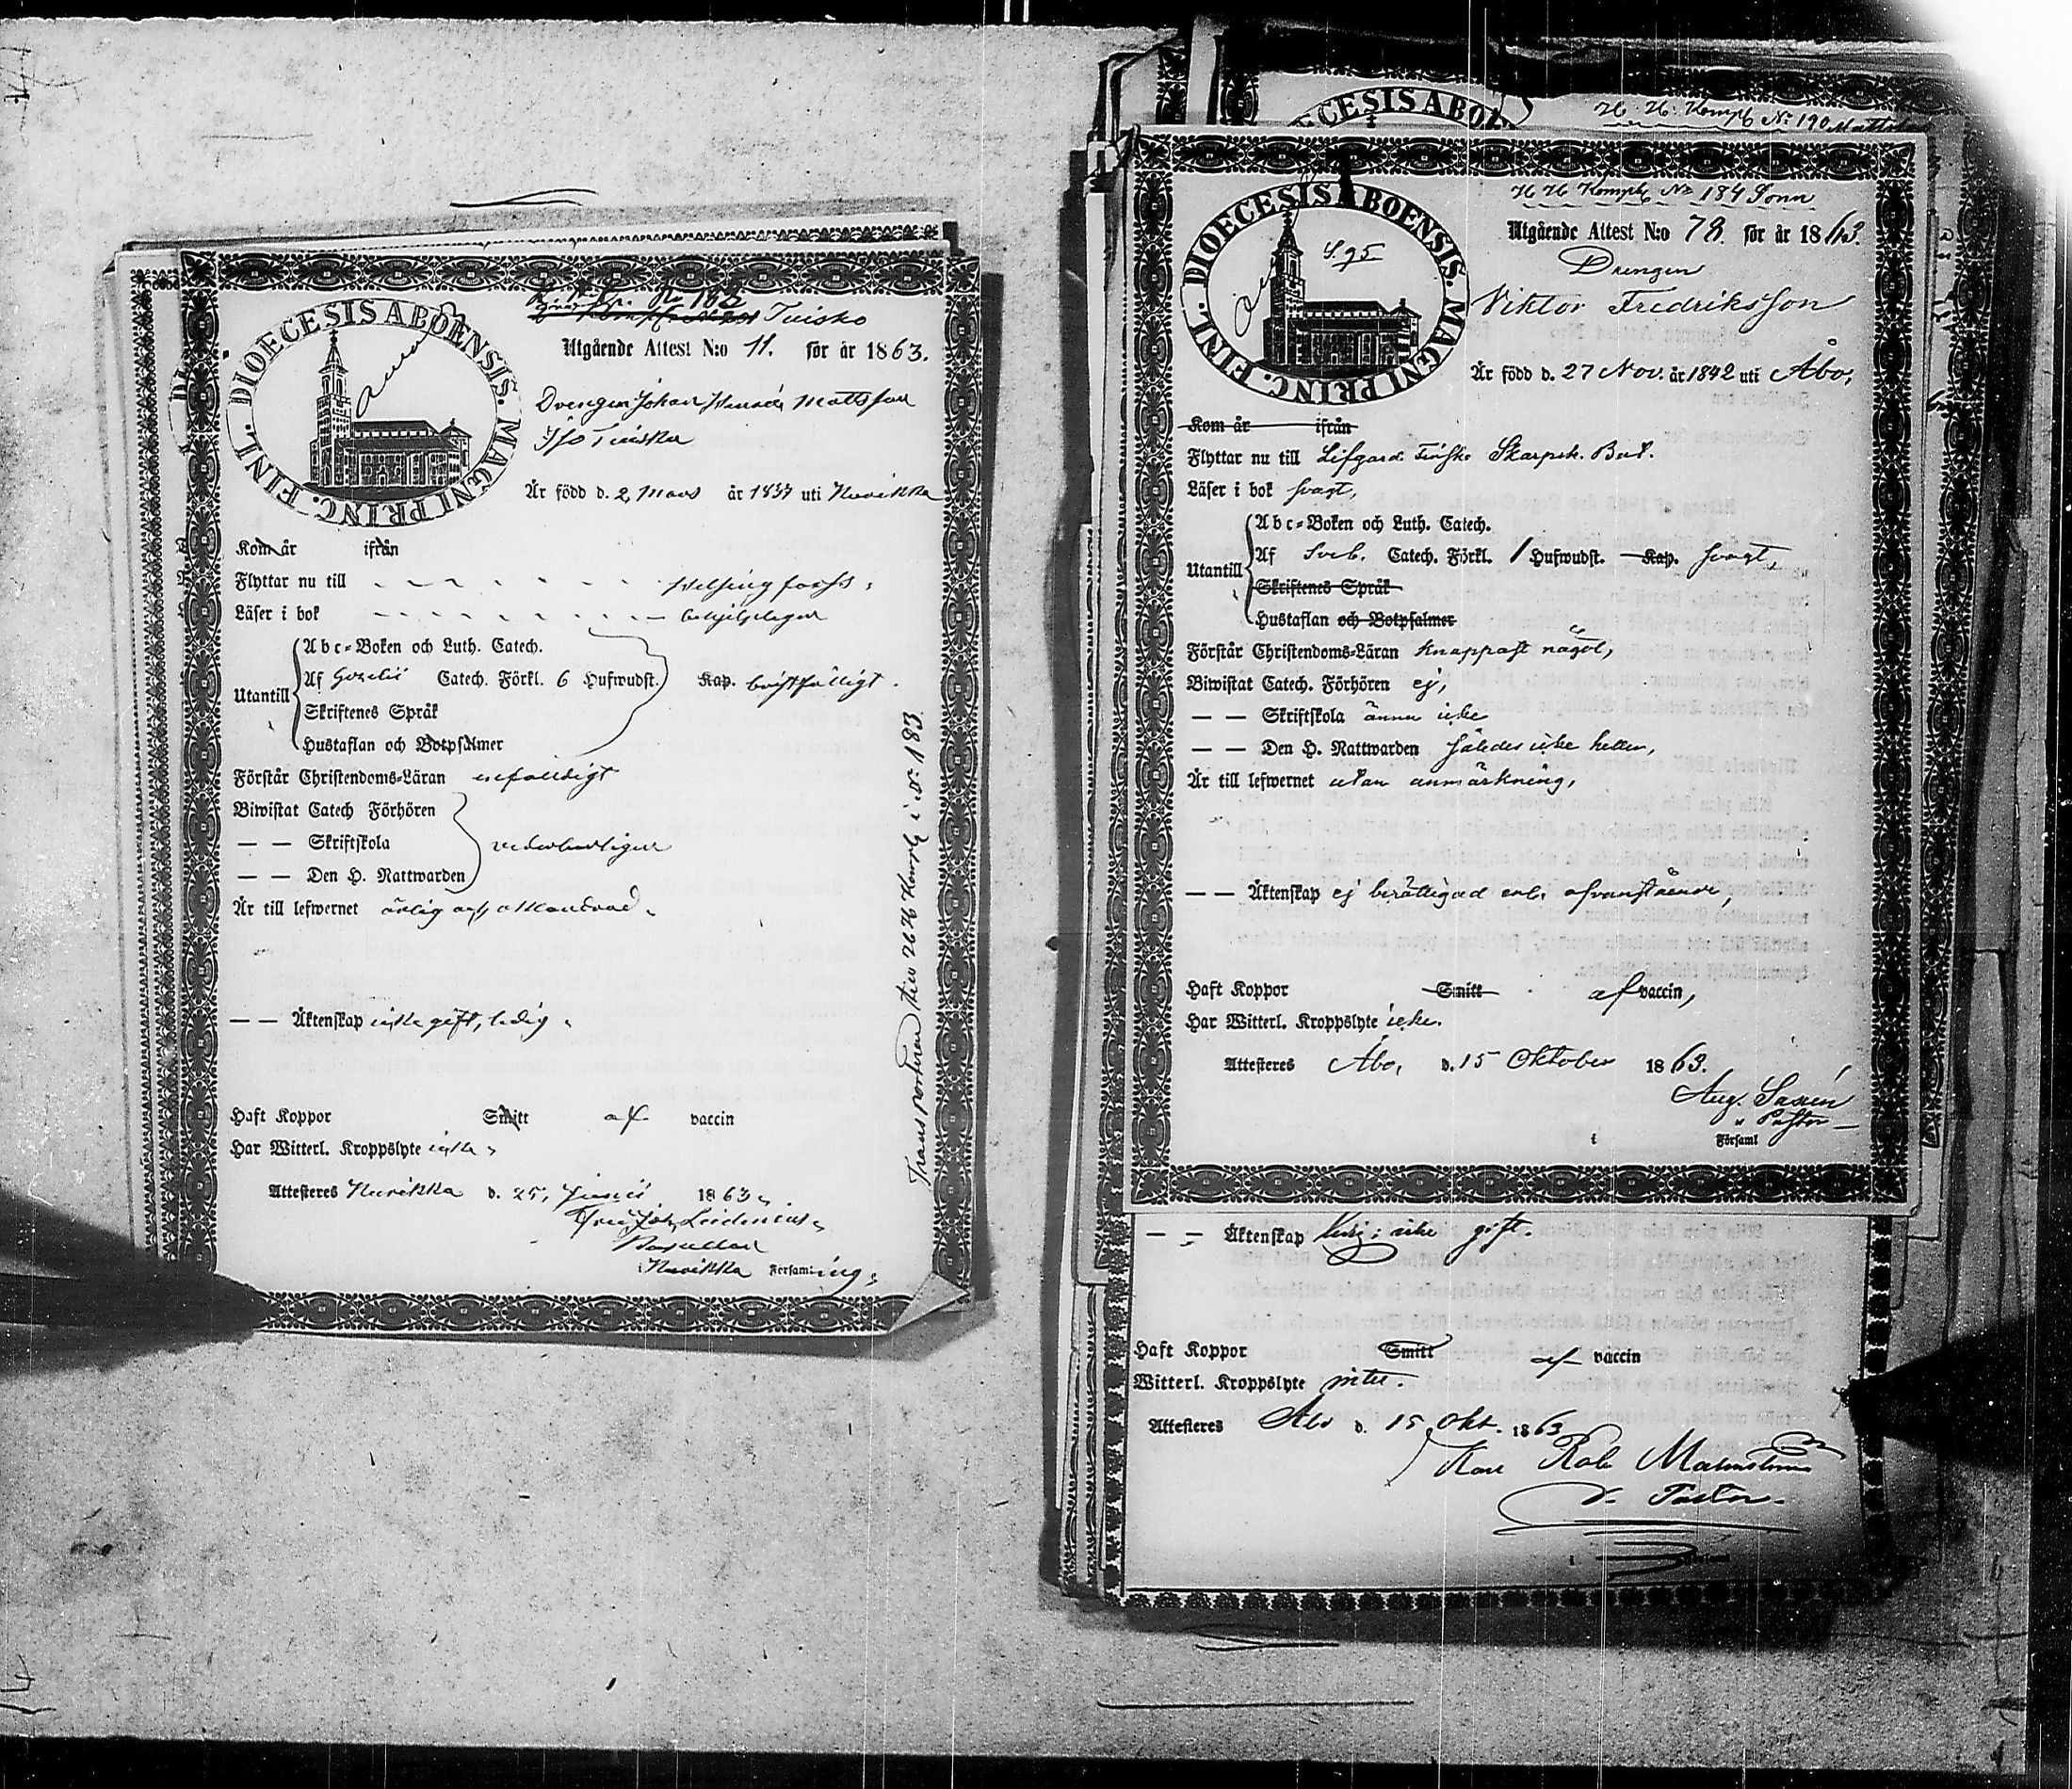 DIOECESIS ABOENSIS. MAGNI PRINC. FINL.
Tuisko
Utgående Attest N:o 11. för år 1863.
Drengen Johan Mattsson
Tuiska
Är född d. 2 Mars år 1837 uti
Kom år ifrån
Flyttar nu till Helsingfors
Läser i bok behjelpligen
Utantill
Abc-Boken och Luth. Catech.
Af Catech. Förkl. 6 Hufwudst. Kap. bristfälligt.
Skriftenes Språk
Hustaflan och Botpsalmer
Förstår Christendoms-Läran enfaldigt
Biwistat Catech Förhören
— — Skriftskola
— — Den H. Nattwarden
vederbörligen
Är till lefwernet ärlig och oklandrad.
— — Äktenskap icke gift, ledig.
Haft Koppor Smitt af vaccin
Har Witterl. Kroppslyte icke
Attesteres d. 25, Junii 1863
Församl:ing
i N: 183
CESIS ABO
H. H. Komp N: 190
DIOECESIS ABOENSIS. MAGNI PRINC. FINL.
S. 95
H H Komp No 184
Utgående Attest N:o 78. för år 1863.
Drengen
Viktor Fredriksson
Är född d. 27 Nov. år 1842 uti Åbo,
Kom år ifrån
Flyttar nu till Lifgard. Finska Skarpsk. Bat.
Läser i bok svagt,
Utantill
Abc-Boken och Luth. Catech.
Af Sveb. Catech. Förkl. 1 Hufwudst. Kap. svagt,
Skriftenes Språk
Hustaflan och Botpsalmer
Förstår Christendoms-Läran knappast något,
Biwistat Catech. Förhören ej,
— — Skriftskola ännu icke
— — Den H. Nattwarden således icke heller,
Är till lefwernet utan anmärkning,
— — Äktenskap ej berättigad enl. ofvanstående,
Haft Koppor Smitt af vaccin,
Har Witterl. Kroppslyte icke.
Attesteres Åbo, d. 15 Oktober 1863.
Aug.
Pastor
i Församl
— — Äktenskap ledig; icke gift.
Haft Koppor Smitt af vaccin
Witterl. Kroppslyte intet.
Attesteres Åbo d. 15 Okt. 1863
Karl Rob Malmström
v. Pastor.